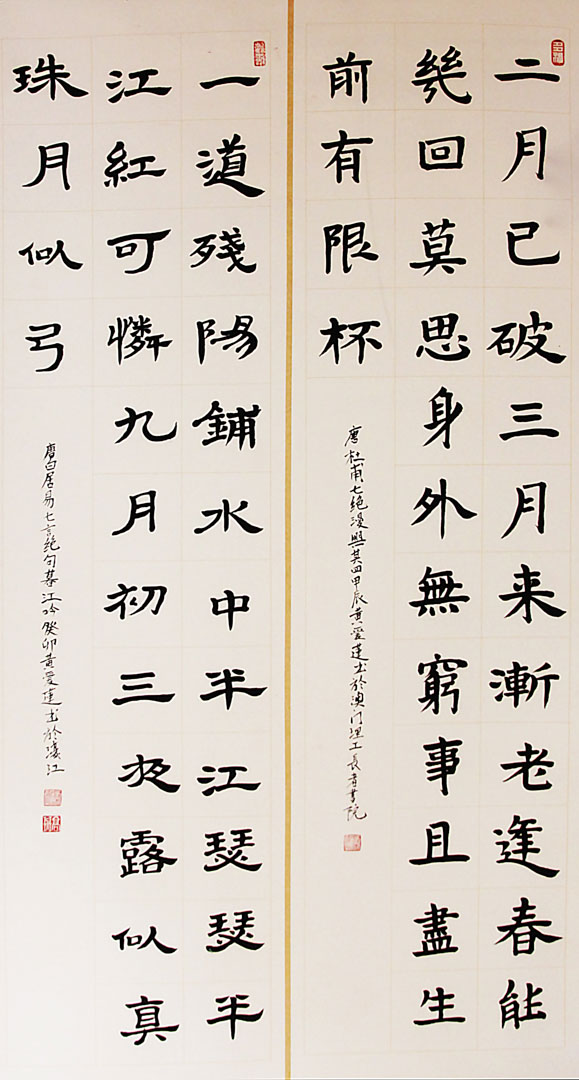 二月已破三月来漸老逢春能
幾回莫思身外無窮事且盡生
前有限杯
唐杜甫七绝漫興其四甲辰黄爱莲书於澳门理工長者書院
一道殘陽鋪水中半江瑟瑟半
江紅可憐九月初三夜露似真
珠月似弓
唐白居易七言绝句暮江吟癸卯黄爱莲书於濠江